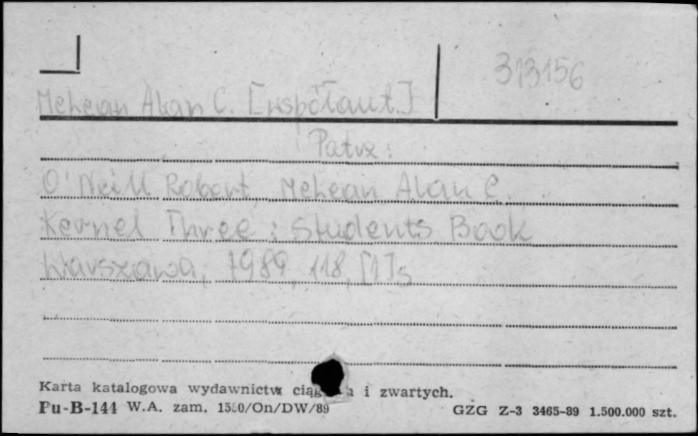 313156
McLean Alan C. [współaut.]
Patrz:
O'Neill Robert, McLean Alan C.
Kernel Three : Students Book
Warszawa, 1989, 118, [1] s
Karta katalogowa wydawnictw i zwartych.
Pu-B-144 W.A. zam. /On/DW/89 GZG Z-3 3465-89 1.500.000 szt.